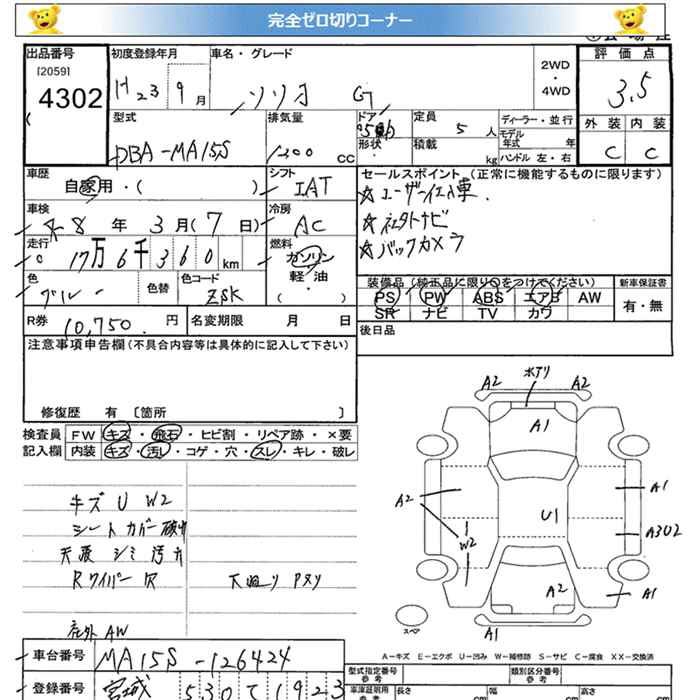 完全ゼロ切りコーナー
出品番号
[2059]
4302
初度登録年月
H23 9月
車名・グレード
ソリオ G
2WD
・
4WD
評価点
3.5
外装 内装
C C
型式
DBA-MA15S
排気量
1200 cc
ドア 5
形状
定員 5 人
積載 kg
ディーラー・並行
モデル年式 年
ハンドル 左・右
車歴
自家用・( )
シフト
IAT
車検
8年 3月(7日)
冷房
AC
走行
17万6千360km
燃料
ガソリン
軽・油
( )
色
ブルー
色替
色コード
ZSK
R券 10,750. 円
名変期限 月 日
セールスポイント(正常に機能するものに限ります)
☆ユーザー
☆社外ナビ
☆バックカメラ
装備品(純正品に限り○をつけてください)
PS PW ABS エアB AW
SR ナビ TV カワ
新車保証書
有・無
後日品
注意事項申告欄(不具合内容等は具体的に記入して下さい)
修復歴 有 〔箇所 〕
検査員
記入欄
FW キズ・飛石・ヒビ割・リペア跡・×要
内装 キズ・汚レ・コゲ・穴・スレ・キレ・破レ
キズ U W2
シートカバー
天張 シミ 汚レ
Rワイパー 欠
下廻り Pヌリ
社外 AW
A2 A2
A1
A2
W2
U1
A1
A302
A2
A1
A1
スペア
A-キズ E-エクボ U-凹み W-補修跡 S-サビ C-腐食 XX-交換済
車台番号 MA15S-126424
登録番号 宮城 530 1923
型式指定番号
参考
類別区分番号
参考
車庫証明用
長さ cm 幅 cm 高さ cm